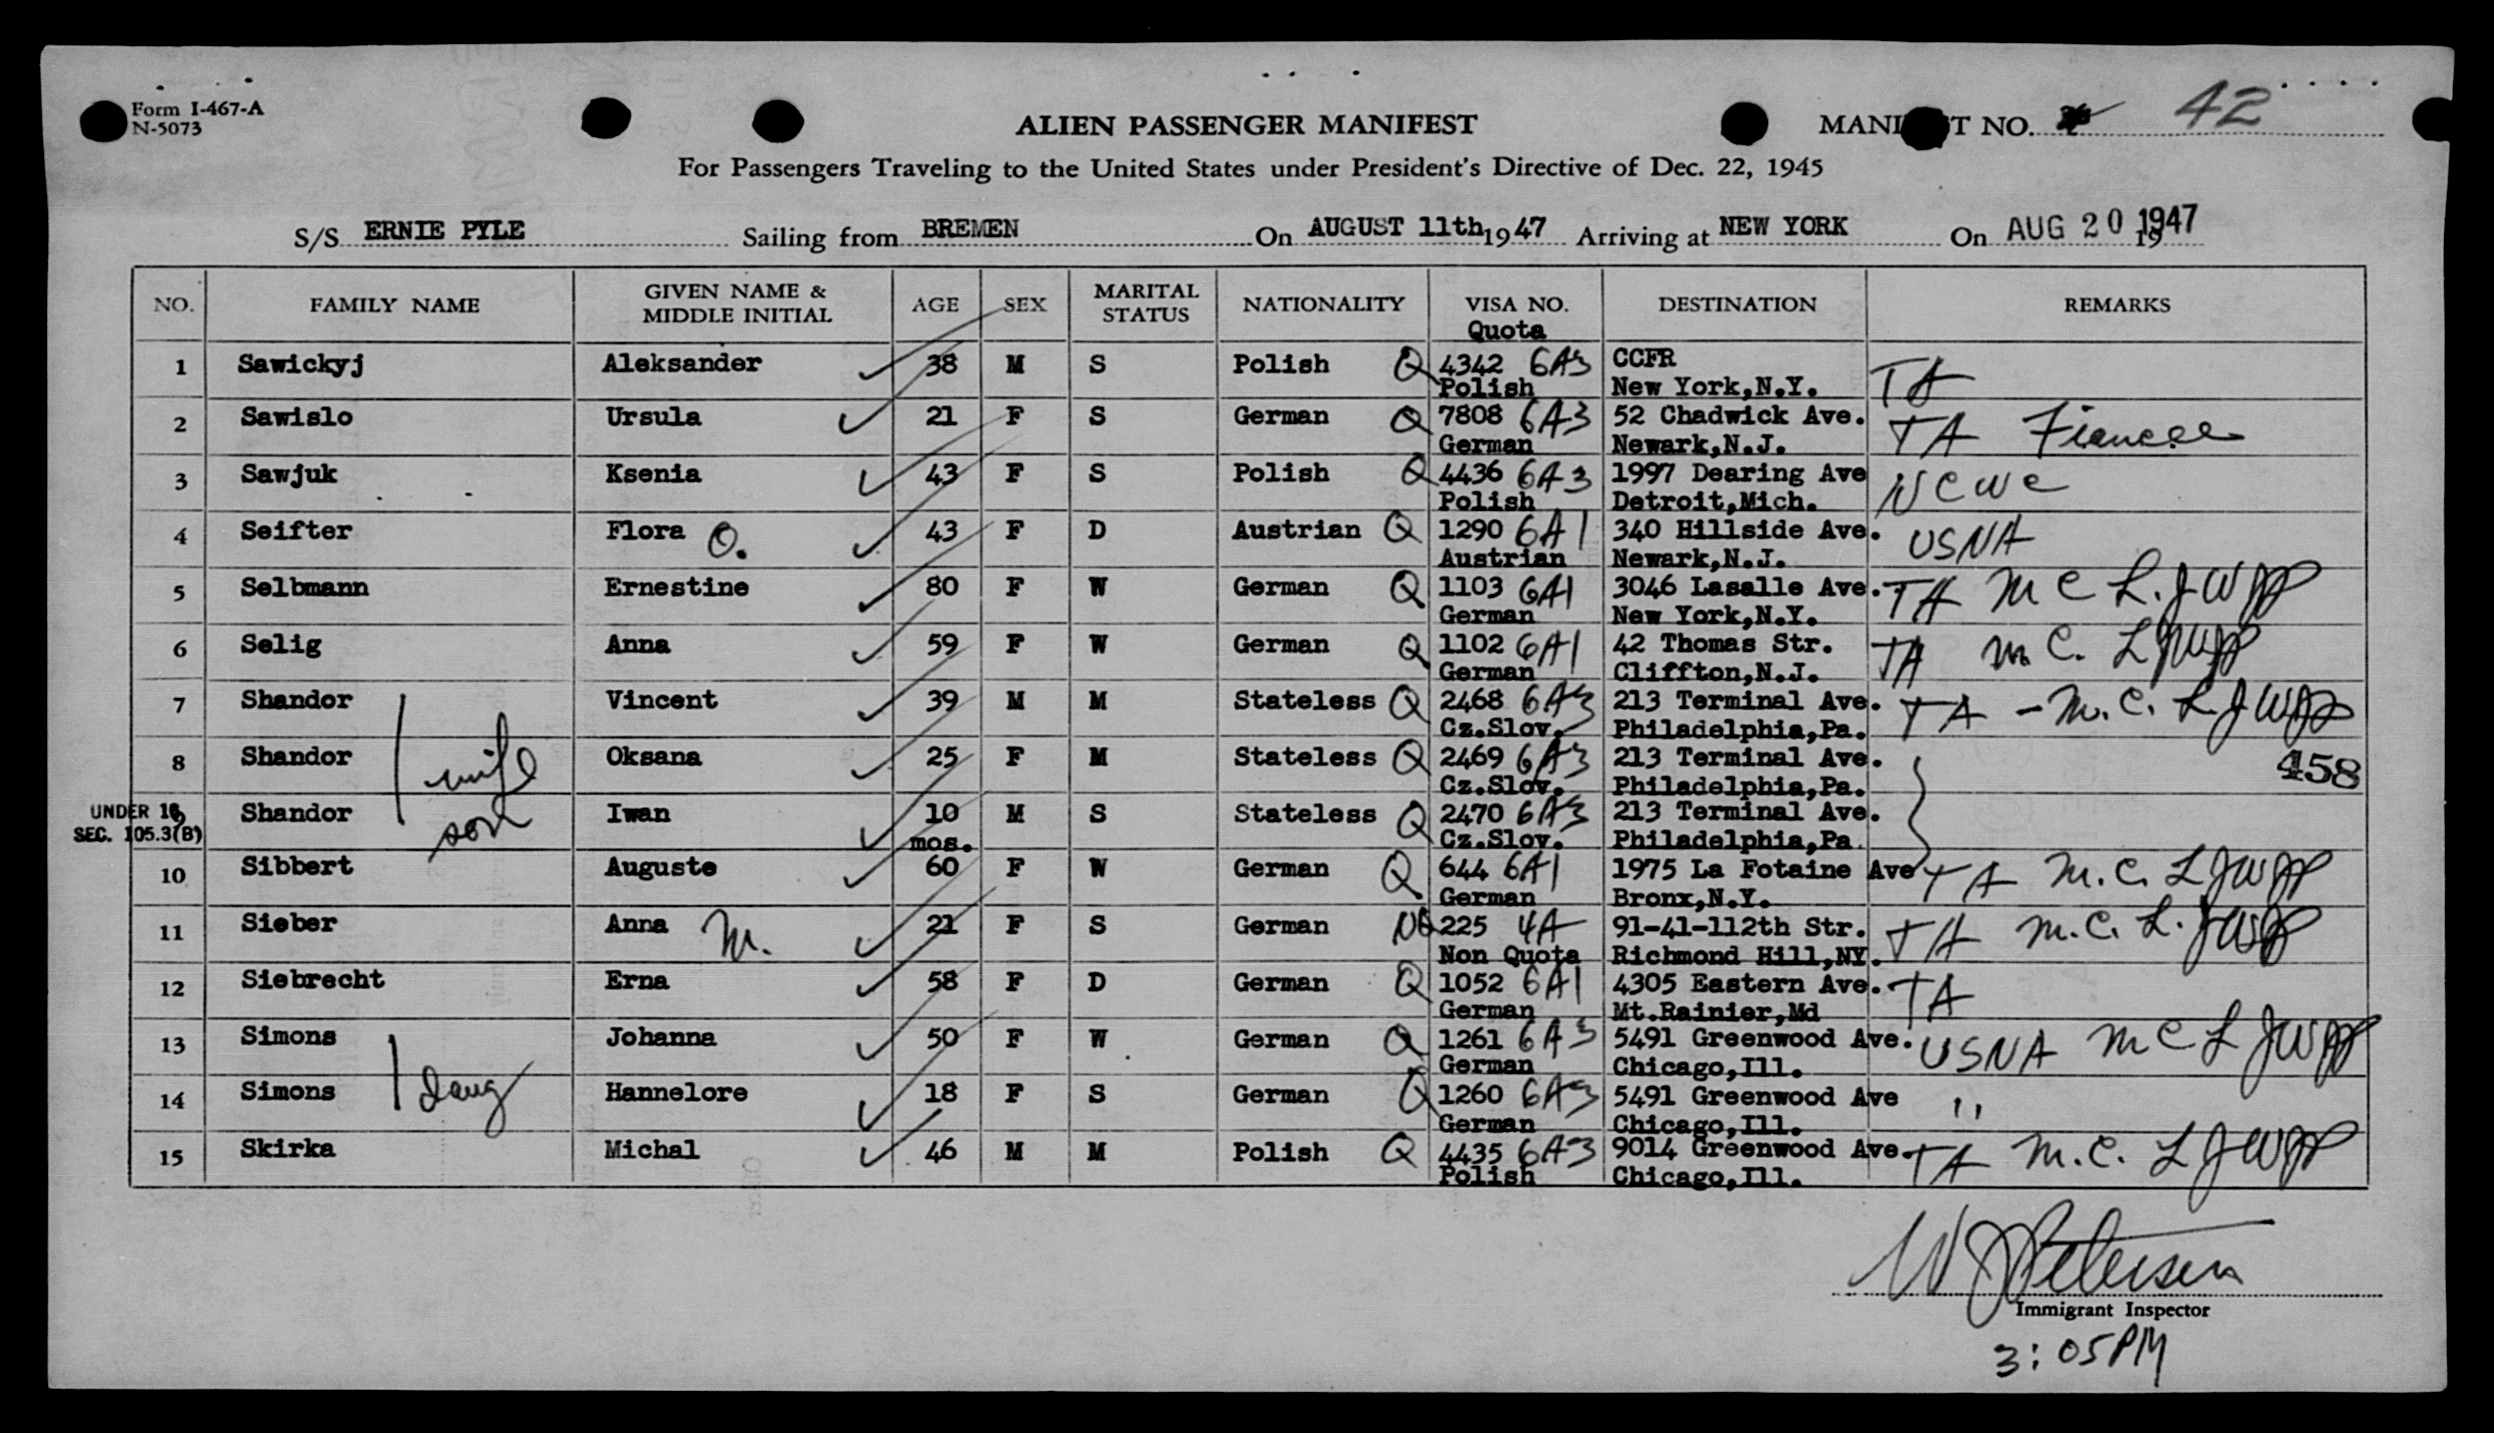 Form I-467-A
N-5073
ALIEN PASSENGER MANIFEST
MANI T NO. 42
For Passengers Traveling to the United States under President's Directive of Dec. 22, 1945
S/S ERNIE PYLE Sailing from BREMEN On AUGUST 11th 1947 Arriving at NEW YORK On AUG 20 1947 19
NO. FAMILY NAME GIVEN NAME & MIDDLE INITIAL AGE SEX MARITAL STATUS NATIONALITY VISA NO. Quota DESTINATION REMARKS
1 Sawickyj Aleksander 38 M S Polish Q 4342 6A3 CCFR TA
Polish New York,N.Y.
2 Sawislo Ursula 21 F S German Q 7808 6A3 52 Chadwick Ave. TA Fiancee
German Newark,N.J.
3 Sawjuk Ksenia 43 F S Polish Q 4436 6A3 1997 Dearing Ave NCWC
Polish Detroit,Mich.
4 Seifter Flora O. 43 F D Austrian Q 1290 6A1 340 Hillside Ave. USNA
Austrian Newark,N.J.
5 Selbmann Ernestine 80 F W German Q 1103 6A1 3046 Lasalle Ave. TA M C L. JWPP
German New York,N.Y.
6 Selig Anna 59 F W German Q 1102 6A1 42 Thomas Str. TA M.C. L JWPP
German Cliffton,N.J.
7 Shandor Vincent 39 M M Stateless Q 2468 6A3 213 Terminal Ave. TA - M.C. L JWPP
Cz.Slov. Philadelphia,Pa.
8 Shandor wife Oksana 25 F M Stateless Q 2469 6A3 213 Terminal Ave. 458
Cz.Slov. Philadelphia,Pa.
UNDER 16 Shandor son Iwan 10 M S Stateless Q 2470 6A3 213 Terminal Ave.
SEC. 105.3(B) mos. Cz.Slov. Philadelphia,Pa.
10 Sibbert Auguste 60 F W German Q 644 6A1 1975 La Fotaine Ave TA M.C. L JWPP
German Bronx,N.Y.
11 Sieber Anna M. 21 F S German NQ 225 4A 91-41-112th Str. TA M.C. L. JWPP
Non Quota Richmond Hill,NY.
12 Siebrecht Erna 58 F D German Q 1052 6A1 4305 Eastern Ave. TA
German Mt.Rainier,Md
13 Simons Johanna 50 F W German Q 1261 6A3 5491 Greenwood Ave. USNA M C L JWPP
German Chicago,Ill.
14 Simons daug Hannelore 18 F S German Q 1260 6A3 5491 Greenwood Ave "
German Chicago,Ill.
15 Skirka Michal 46 M M Polish Q 4435 6A3 9014 Greenwood Ave. TA M.C. L JWPP
Polish Chicago,Ill.
W J Petersen
Immigrant Inspector
3:05PM